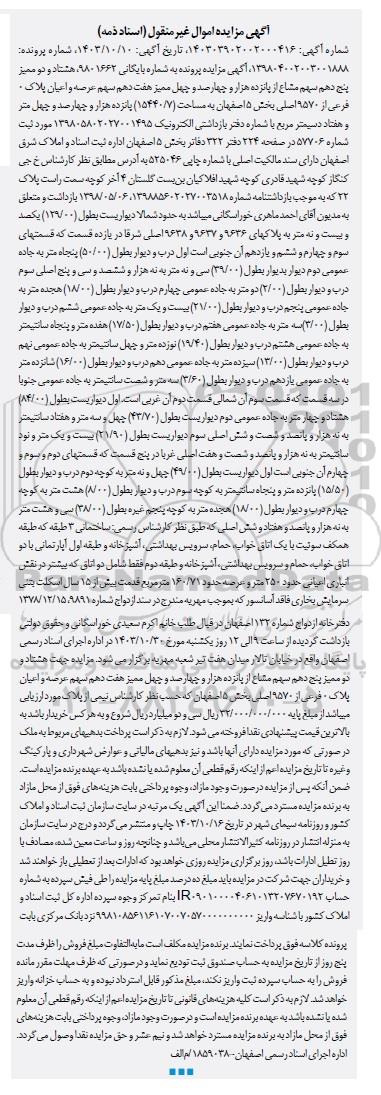 آگهی مزایده اموال غیر منقول (اسناد ذمه)
شماره آگهی: ۱۴۰۳۰۳۹۰۲۰۰۲۰۰۰۴۱۶، تاریخ آگهی: ۱۴۰۳/۱۰/۱۰، شماره پرونده:
۱۳۹۸۰۴۰۰۲۰۰۳۰۰۱۸۸۸، آگهی مزایده پرونده به شماره بایگانی ۹۸۰۱۶۶۲، هشتاد و دو ممیز
پنج دهم سهم مشاع از پانزده هزار و چهارصد و چهل ممیز هفت دهم سهم عرصه و اعیان پلاک ۰
فرعی از ۹۵۷۰ اصلی بخش ۵ اصفهان به مساحت (۱۵۴۴۰/۷) پانزده هزار و چهارصد و چهل متر
و هفتاد دسیمتر مربع با شماره دفتر بازداشتی الکترونیک ۱۳۹۸۰۵۸۰۲۰۲۷۰۰۱۴۹۵ مورد ثبت
شماره ۵۷۷۰۶ در صفحه ۲۲۴ دفتر ۳۲۲ دفاتر بخش ۵ اصفهان اداره ثبت اسناد و املاک شرق
اصفهان دارای سند مالکیت اصلی با شماره چاپی ۵۲۵۰۴۶ به آدرس مطابق نظر کارشناس خ جی
کنگاز کوچه شهید قادری کوچه شهید افلاکیان بن‌بست گلستان ۴ آخر کوچه سمت راست پلاک
۲۲ که به موجب بازداشتنامه شماره ۱۳۹۸۸۵۶۰۲۰۲۷۰۰۳۵۱۸، ۱۳۹۸/۰۵/۰۶ بازداشت و متعلق
به مدیون آقای احمد ماهری خوراسگانی میباشد به حدود شمالا دیواریست بطول (۱۲۹/۰۰) یکصد
و بیست و نه متر به پلاکهای ۹۶۳۶ و ۹۶۳۷ و ۹۶۳۸ اصلی شرقا در یازده قسمت که قسمتهای
سوم و چهارم و ششم و یازدهم آن جنوبی است اول درب و دیوار بطول (۵۰/۰۰) پنجاه متر به جاده
عمومی دوم دیوار بدیوار بطول (۳۹/۰۰) سی و نه متر به نه هزار و ششصد و سی و پنج اصلی سوم
درب و دیوار بطول (۲/۰۰) دو متر به جاده عمومی چهارم درب و دیوار بطول (۱۸/۰۰) هجده متر به
جاده عمومی پنجم درب و دیوار بطول (۲۱/۰۰) بیست و یک متر به جاده عمومی ششم درب و دیوار
بطول (۳/۰۰) سه متر به جاده عمومی هفتم درب و دیوار بطول (۱۷/۵۰) هفده متر و پنجاه سانتیمتر
به جاده عمومی هشتم درب و دیوار بطول (۱۹/۴۰) نوزده متر و چهل سانتیمتر به جاده عمومی نهم
درب و دیوار بطول (۱۳/۰۰) سیزده متر به جاده عمومی دهم درب و دیوار بطول (۱۶/۰۰) شانزده متر
به جاده عمومی یازدهم درب و دیوار بطول (۳/۶۰) سه متر و شصت سانتیمتر به جاده عمومی جنوبا
در سه قسمت که قسمت سوم آن شمالی قسمت دوم آن غربی است، اول دیواریست بطول (۸۴/۰۰)
هشتاد و چهار متر به جاده عمومی دوم دیواریست بطول (۴۳/۷۰) چهل و سه متر و هفتاد سانتیمتر
به نه هزار و پانصد و شصت و شش اصلی سوم دیواریست بطول (۲۱/۹۰) بیست و یک متر و نود
سانتیمتر به نه هزار و پانصد و شصت و هفت اصلی غربا در پنج قسمت که قسمتهای دوم و سوم و
چهارم آن جنوبی است اول دیواریست بطول (۴۹/۰۰) چهل و نه متر به کوچه دوم درب و دیوار بطول
(۱۵/۵۰) پانزده متر و پنجاه سانتیمتر به کوچه سوم درب و دیوار بطول (۸/۰۰) هشت متر به کوچه
چهارم درب و دیوار بطول (۱۸/۰۰) هجده متر به کوچه پنجم غیره بطول (۳۸/۰۰) سی و هشت متر
به نه هزار و پانصد و هفتاد و شش اصلی که طبق نظر کارشناس رسمی: ساختمانی ۳ طبقه که طبقه
همکف سوئیت با یک اتاق خواب، حمام، سرویس بهداشتی، آشپزخانه و طبقه اول آپارتمانی با دو
اتاق خواب، حمام و سرویس بهداشتی، آشپزخانه و طبقه دوم فقط شامل دو اتاق که بیشتر در نقش
انباری اعیانی حدود ۲۵۰ متر و عرصه حدود ۱۶۰/۷۱ مترمربع قدمت بیش از ۱۵ سال اسکلت بتنی
سرمایش بخاری فاقد آسانسور که بموجب مهریه مندرج در سند ازدواج شماره ۹۸۹۱، ۱۳۷۸/۱۲/۱۵
دفترخانه ازدواج شماره ۱۳۲ اصفهان در قبال طلب خانم اکرم سعیدی خوراسگانی و حقوق دولتی
بازداشت گردیده از ساعت ۹ الی ۱۲ روز یکشنبه مورخ ۱۴۰۳/۱۰/۳۰ در اداره اجرای اسناد رسمی
اصفهان واقع در خیابان تالار میدان هفت تیر شعبه مهریه برگزار می شود. مزایده جهت هشتاد و
دو ممیز پنج دهم سهم مشاع از پانزده هزار و چهارصد و چهل ممیز هفت دهم سهم عرصه و اعیان
پلاک ۰ فرعی از ۹۵۷۰ اصلی بخش ۵ اصفهان که حسب نظر کارشناس نیمی از پلاک مورد ارزیابی
میباشد از مبلغ پایه ۳۲/۰۰۰/۰۰۰/۰۰۰ ریال سی و دو میلیارد ریال شروع و به هر کس خریدار باشد به
بالاترین قیمت پیشنهادی نقدا فروخته می شود. لازم به ذکر است پرداخت بدهیهای مربوط به ملک
در صورتی که مورد مزایده دارای آنها باشد و نیز بدهیهای مالیاتی و عوارض شهرداری و پارکینگ
وغیره تا تاریخ مزایده اعم از اینکه رقم قطعی آن معلوم شده یا نشده باشد به عهده برنده مزایده است.
ضمن آنکه پس از مزایده درصورت وجود مازاد، وجوه پرداختی بابت هزینه‌های فوق از محل مازاد
به برنده مزایده مسترد می‌گردد. ضمنا این آگهی یک مرتبه در سایت سازمان ثبت اسناد و املاک
کشور و روزنامه سیمای شهر در تاریخ ۱۴۰۳/۱۰/۱۶ چاپ و منتشر می گردد و درج در سایت سازمان
به منزله انتشار در روزنامه کثیرالانتشار محلی می‌باشد و چنانچه روز و ساعت معین شده، مصادف با
روز تعطیل ادارات باشد، روز برگزاری مزایده روزی خواهد بود که ادارات بعد از تعطیلی باز خواهند شد
و خریداران جهت شرکت در مزایده باید مبلغ ده درصد مبلغ پایه مزایده را طی فیش سپرده به شماره
حساب IR۰۹۰۱۰۰۰۰۴۰۶۱۰۱۳۲۰۷۶۷۰۱۹۲ بنام تمرکز وجوه سپرده اداره کل ثبت اسناد و
املاک کشور با شناسه واریز ۹۹۸۱۰۸۵۶۱۱۶۱۰۷۰۰۷۰۵۷۰۰۰۰۰۰۰۰۰۰ نزد بانک مرکزی بابت
پرونده کلاسه فوق پرداخت نمایند. برنده مزایده مکلف است مابه‌التفاوت مبلغ فروش را ظرف مدت
پنج روز از تاریخ مزایده به حساب صندوق ثبت تودیع نماید و درصورتی که ظرف مهلت مقرر مانده
فروش را به حساب سپرده ثبت واریز نکند، مبلغ مذکور قابل استرداد نبوده و به حساب خزانه واریز
خواهد شد. لازم به ذکر است کلیه هزینه‌های قانونی تا تاریخ مزایده اعم از اینکه رقم قطعی آن معلوم
شده یا نشده باشد به عهده برنده مزایده است و درصورت وجود مازاد، وجوه پرداختی بابت هزینه‌های
فوق از محل مازاد به برنده مزایده مسترد خواهد شد و نیم عشر و حق مزایده نقدا وصول می گردد.
اداره اجرای اسناد رسمی اصفهان-۱۸۵۹۰۳۸/م الف